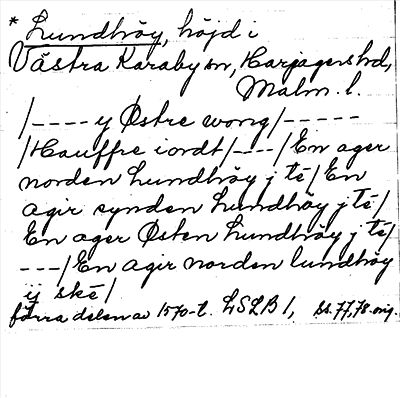 * Lundhöy, höjd i
Västra Karaby sn, Harjagers hd,
Malm. l.
/---- y Østre wong/-----
/Hauffre iordt/---/En ager
norden Lundhöy j tē/En
agir synden Lundhöy j tē/
En ager Østen Lundhöy j tē/
---/En agir norden lundhöy
ij skē/
förra delen av 1570-t. LSLB 1, ss. 77, 78. orig.